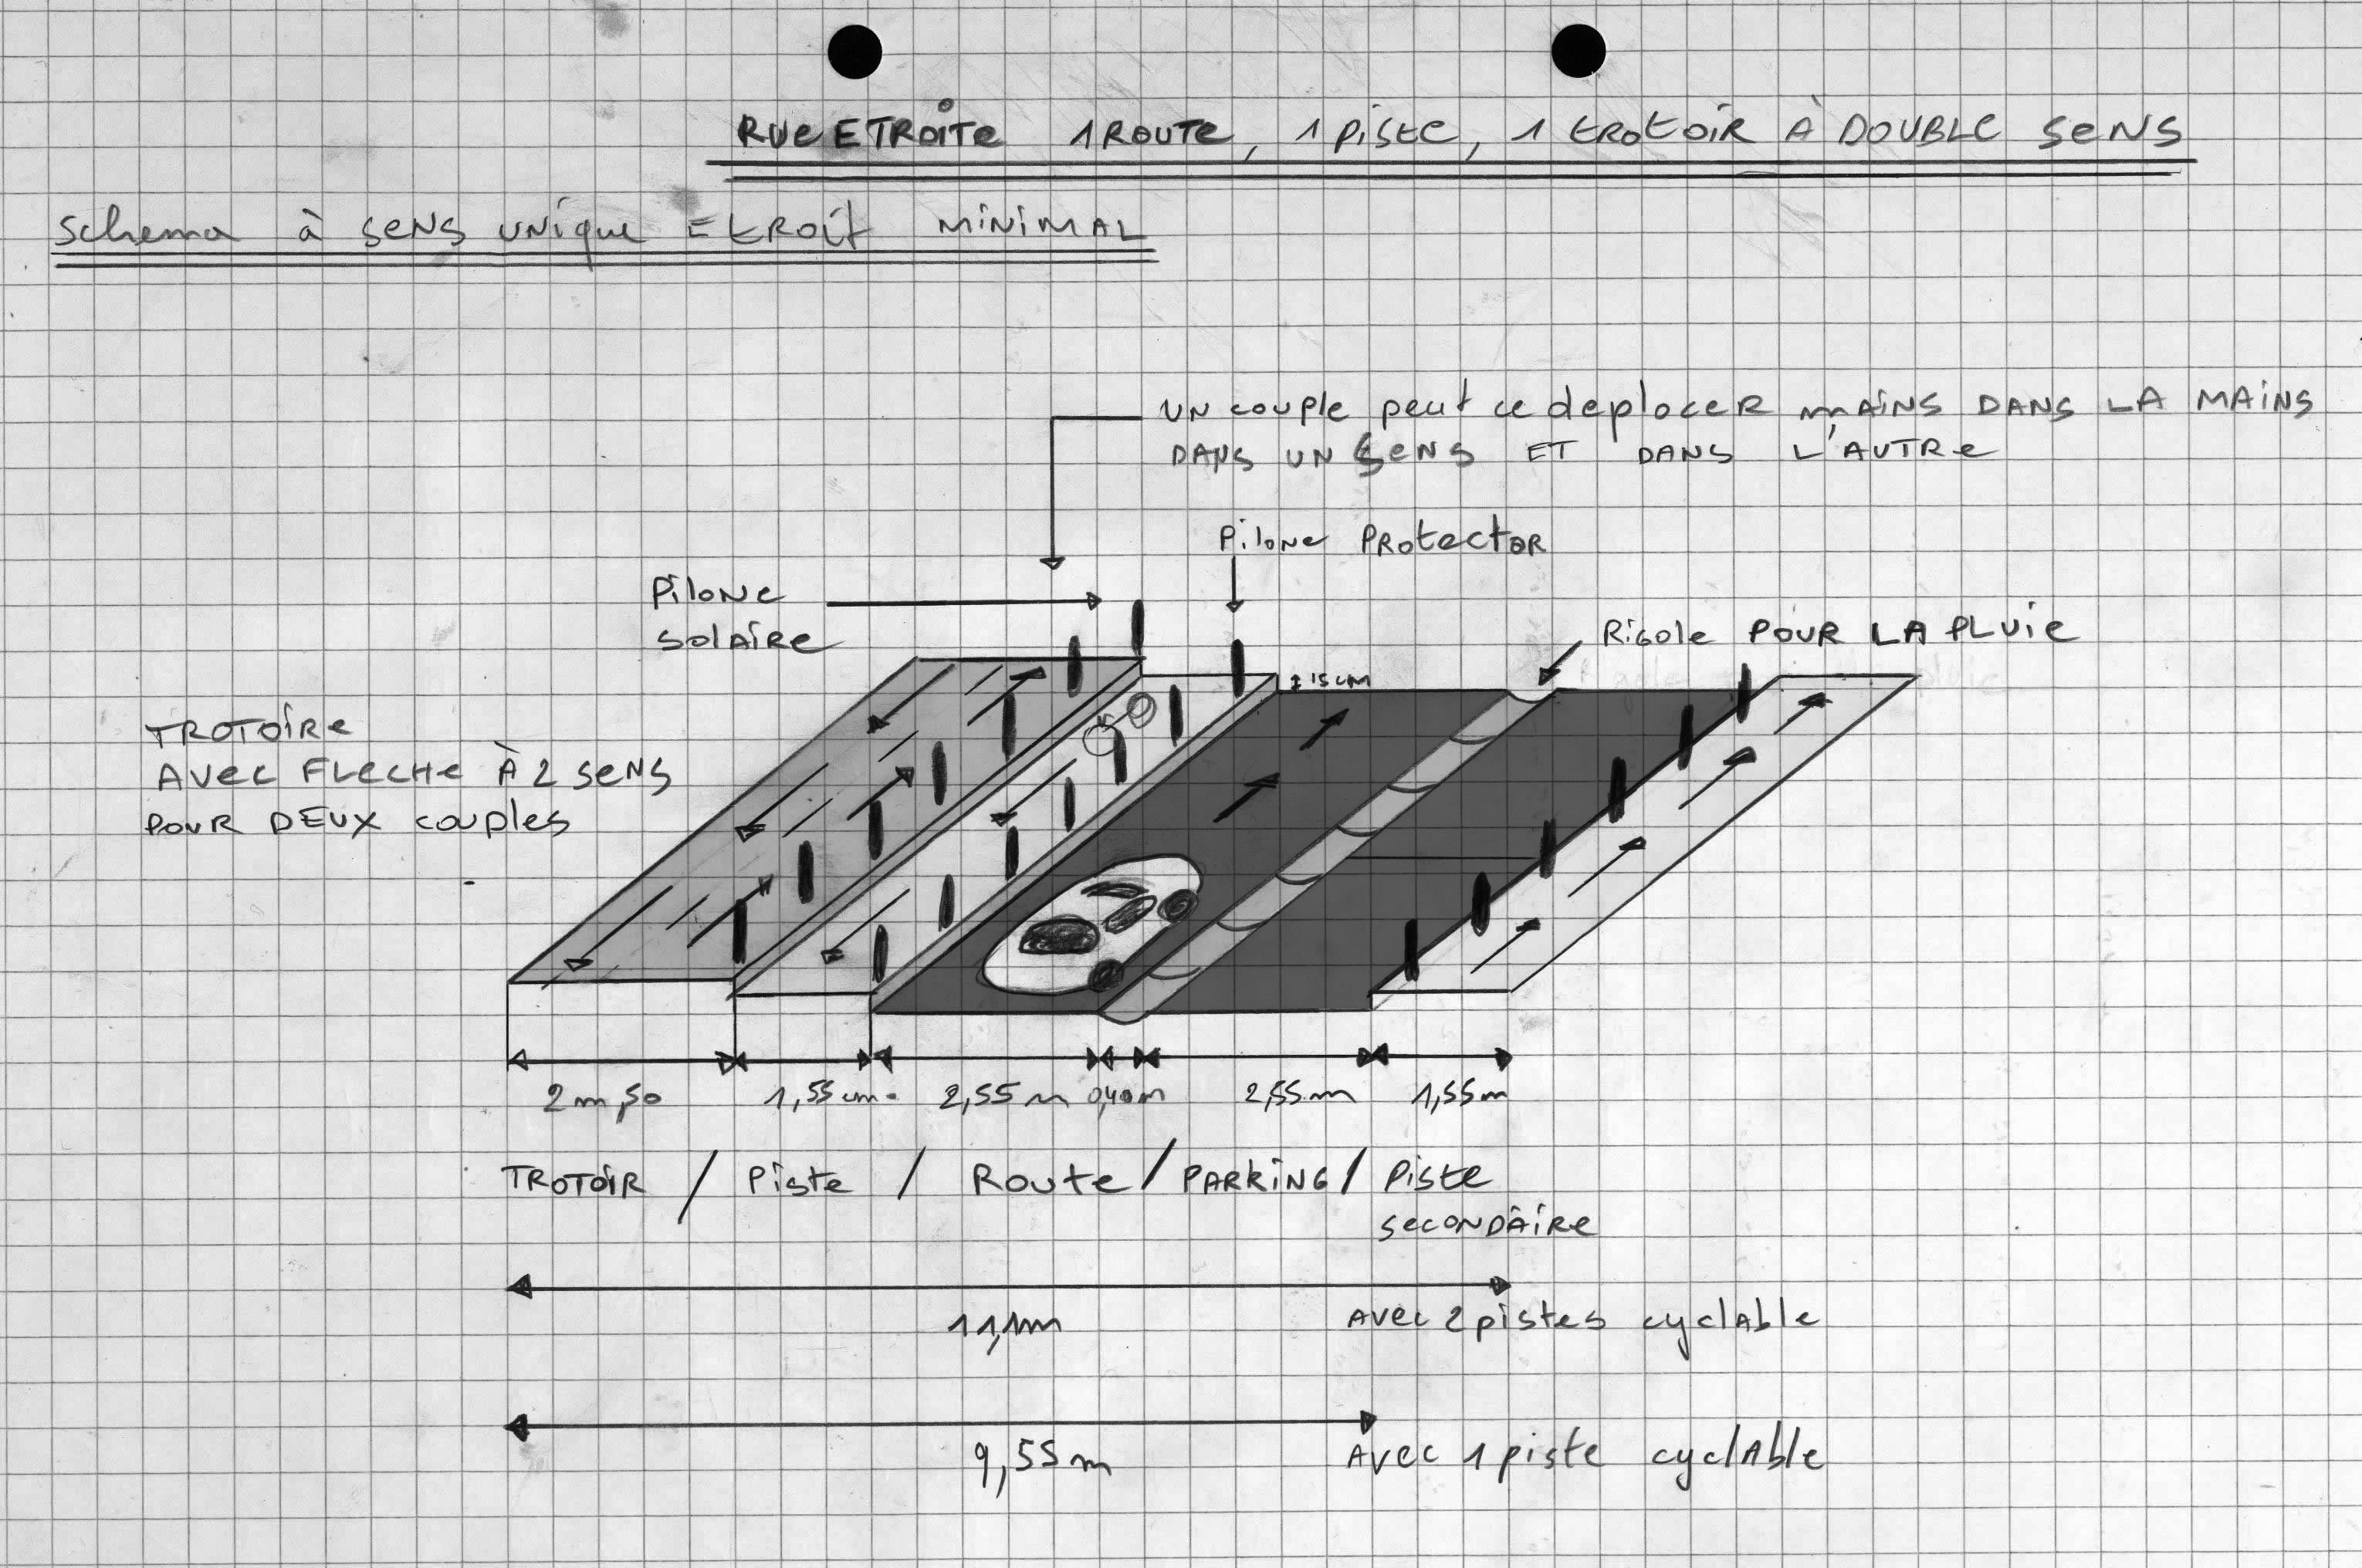 RUE ETROITE 1 ROUTE, 1 PISTE, 1 tROtOIR À DOUBLE SENS
Schema à SENS UNIQUE EtROit MINIMAL
UN couple peut ce deplacer MAINS DANS LA MAINS
DANS UN SENS ET DANS L'AUTRE
Pilone PROtectOR
PILONE
SOLAIRE
RIGOLE POUR LA PLUIE
TROTOIRE
AVEC FLECHE À 2 SENS
POUR DEUX couples
± 15 cm
2 m,50 1,55 cm. 2,55 m 0,40 m 2,55 m 1,55 m
TROTOIR / Piste / Route / PARKING / Piste
SECONDAIRE
11,1m AVEC 2 pistes cyclAble
9,55 m AVEC 1 piste cyclAble